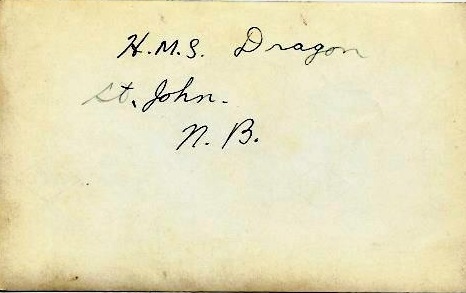 H.M.S. Dragon
St. John.
N. B.